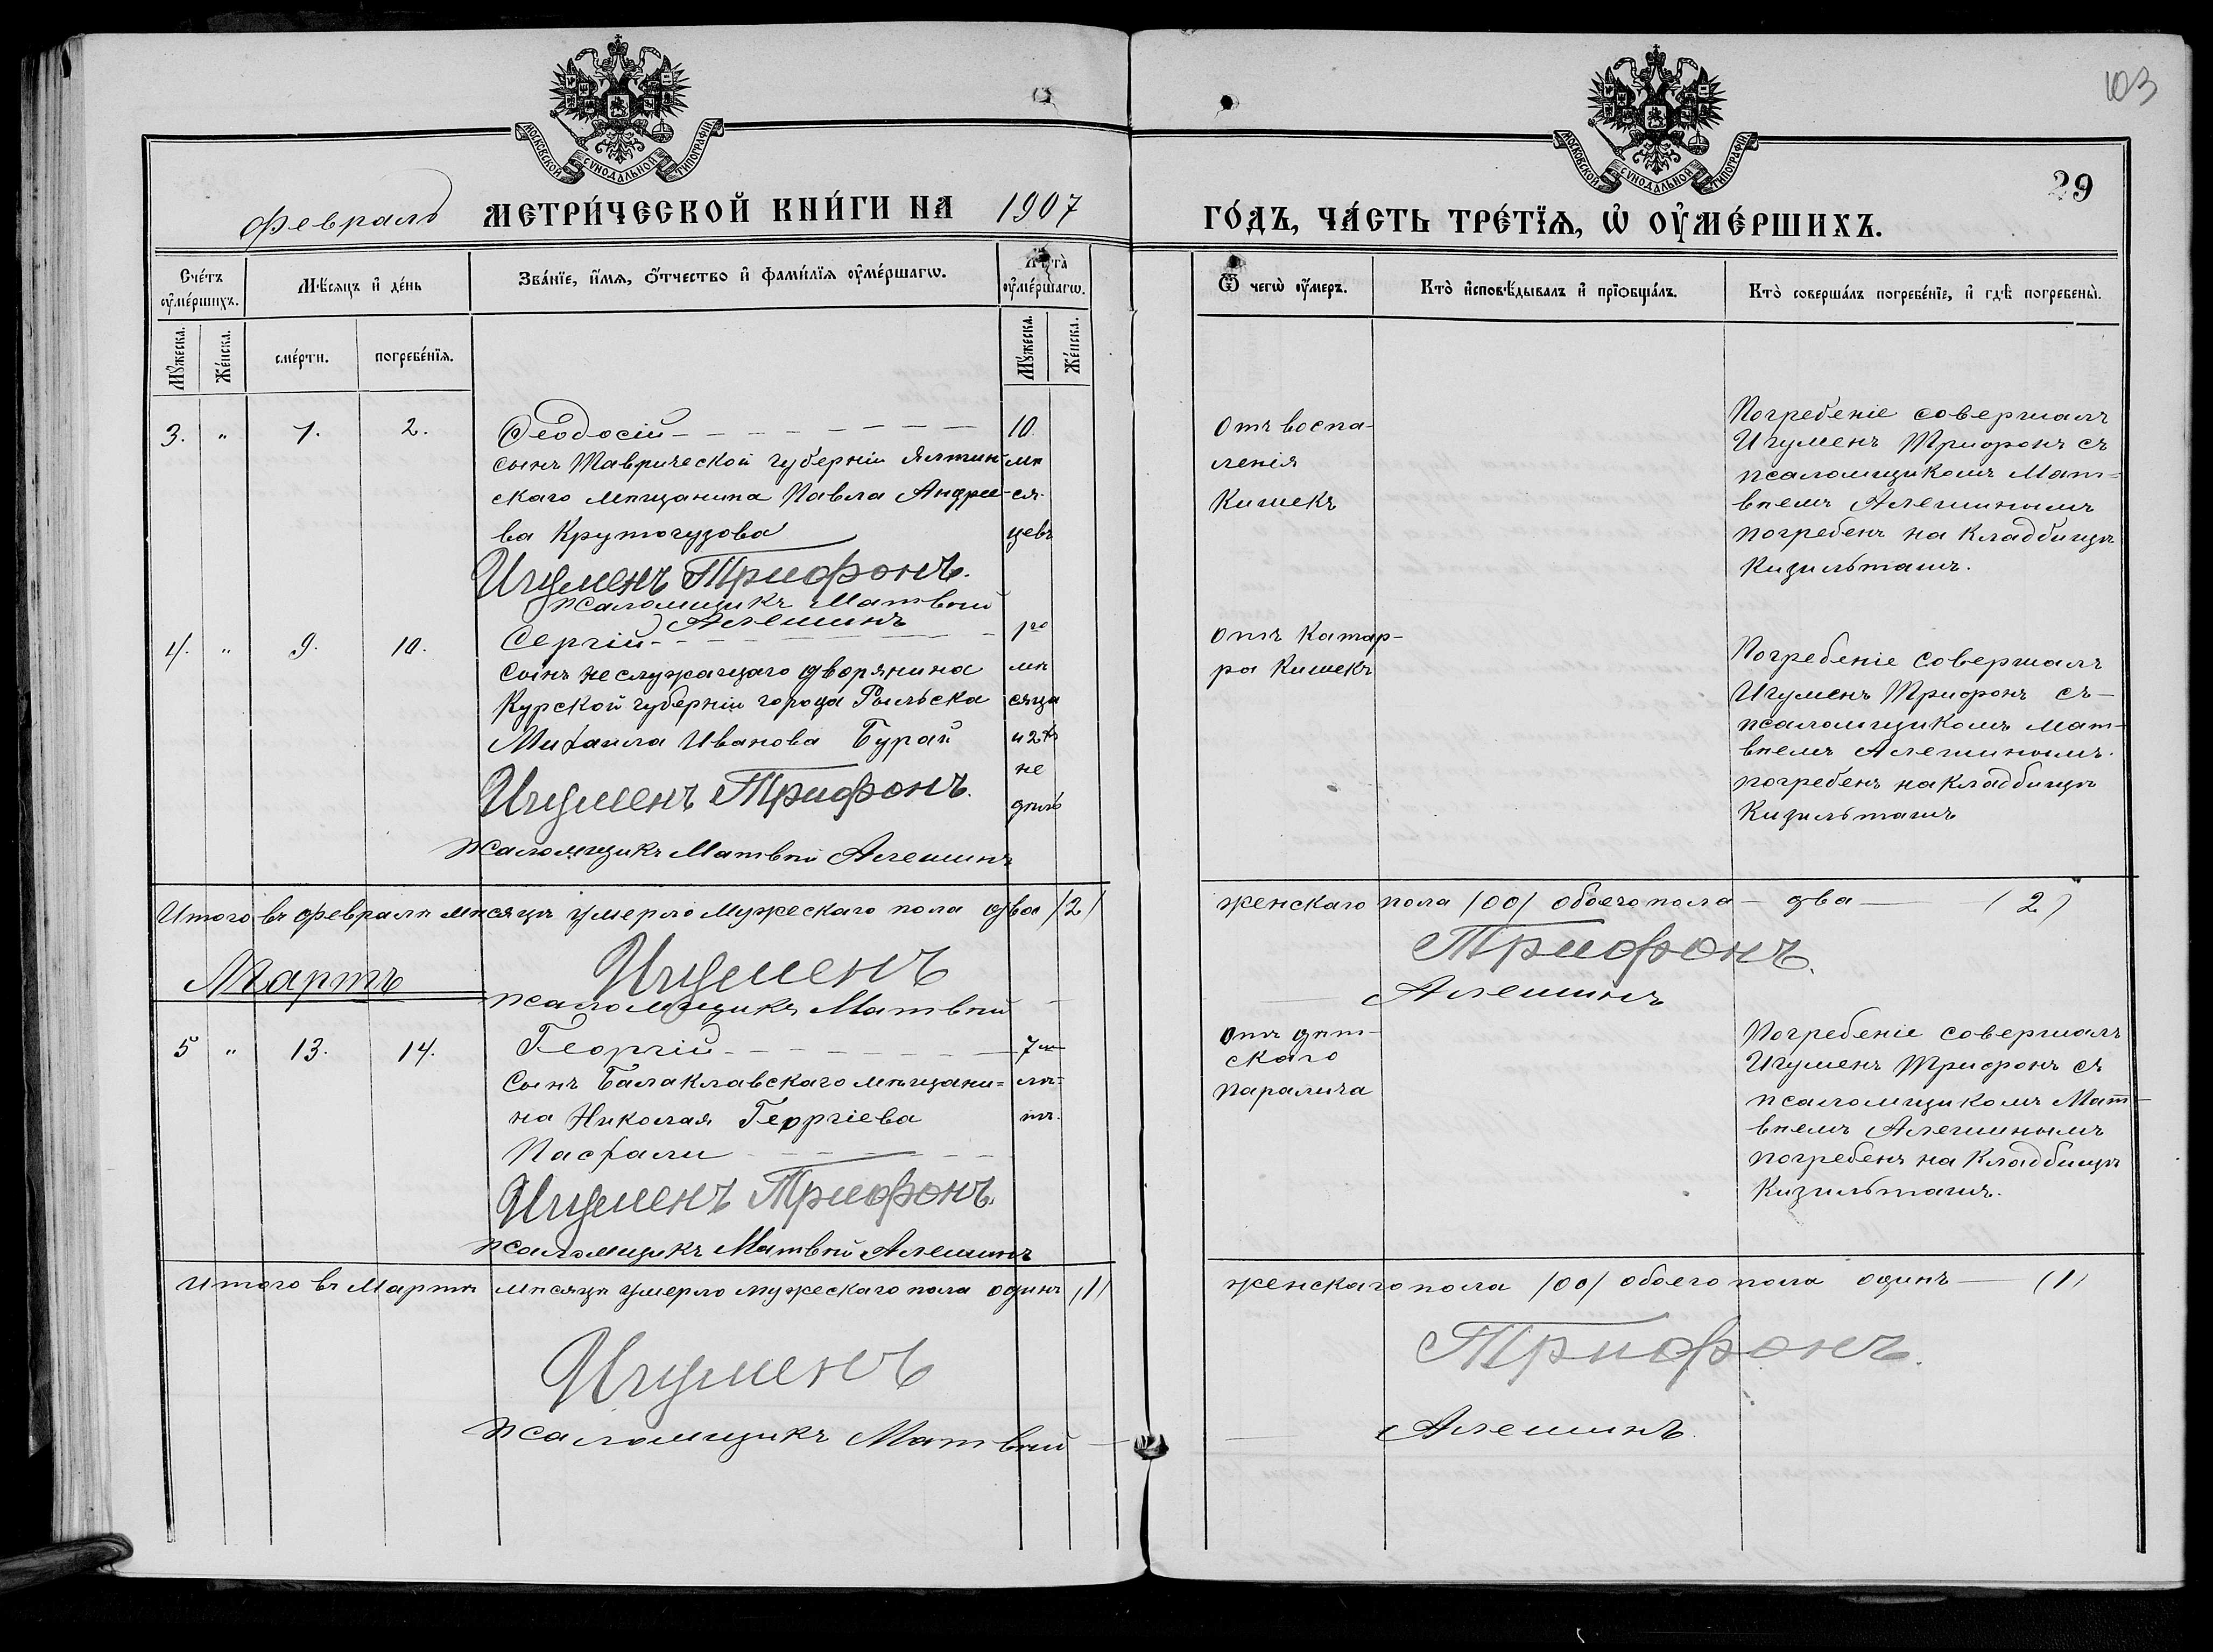 103
МОСКОВСКОЙ СѴНОДАЛЬНОЙ ТИПОГРАФІИ
МОСКОВСКОЙ СѴНОДАЛЬНОЙ ТИПОГРАФІИ
29
Февраль МЕТРИ́ЧЕСКОЙ КНИ́ГИ НА 1907 ГО́ДЪ, ЧА́СТЬ ТРЕ́ТЇѦ, Ѽ ОУ҆МЕ́РШИХЪ.
Сче́тъ оу҆ме́ршихъ.
Мѣ́сяцъ и҆ де́нь
Зва́нїе, и҆́мѧ, ѻ҆́тчество и҆ фами́лїѧ оу҆ме́ршагѡ.
Лѣ́та̀ оу҆ме́ршагѡ.
Ѿ чегѡ̀ оу҆́меръ.
Кто̀ и҆сповѣ́дывалъ и҆ прїѡбща́лъ.
Кто̀ соверша́лъ погребе́нїе, и҆ гдѣ̀ погребены̀.
Мꙋ́жеска.
Же́нска.
сме́рти.
погребе́нїѧ.
Мꙋ́жеска.
Же́нска.
3. " 1. 2.
Ѳеодосій
сынъ Таврической губерніи Ялтин-
скаго мѣщанина Павла Андрее-
ва Крутогузова
10.
мѣ
ся-
цевъ
Игуменъ Трифонъ.
Псаломщикъ Матвѣй
Алешинъ
Отъ воспа-
ленія
Кишекъ
Погребеніе совершалъ
Игуменъ Трифонъ съ
псаломщикомъ Мат=
вѣемъ Алешинымъ
погребенъ на Кладбищѣ
Кизильташъ.
4. " 9. 10.
Сергій
Сынъ неслужащаго дворянина
Курской губерніи города Рыльска
Михаила Иванова Бурай
1го
мѣ
сяца
и 2хъ
не
дѣль
Игуменъ Трифонъ.
Псаломщикъ Матвѣй Алешинъ
Отъ Катар-
ра Кишекъ
Погребеніе совершалъ
Игуменъ Трифонъ съ
псаломщикомъ Мат-
вѣемъ Алешинымъ.
погребенъ на Кладбищѣ
Кизильташъ
Итого въ Февралѣ мѣсяцѣ умерло Мужескаго пола два (2) женскаго пола (00) обоего пола два (2)
Игуменъ Трифонъ.
Псаломщикъ Матвѣй Алешинъ
Мартъ
5 " 13. 14.
Георгій
Сынъ Балаклавскаго мѣщани=
на Николая Георгіева
Пасхали
7ми
лѣ=
тъ.
Игуменъ Трифонъ.
Псаломщикъ Матвѣй Алешинъ
Отъ дѣт-
скаго
паралича
Погребеніе совершалъ
Игуменъ Трифонъ съ
псаломщикомъ Мат-
вѣемъ Алешинымъ
погребенъ на Кладбищѣ
Кизильташъ.
Итого въ Мартѣ мѣсяцѣ умерло мужескаго пола одинъ (1) женскаго пола (00) обоего пола одинъ (1)
Игуменъ Трифонъ.
Псаломщикъ Матвѣй Алешинъ.